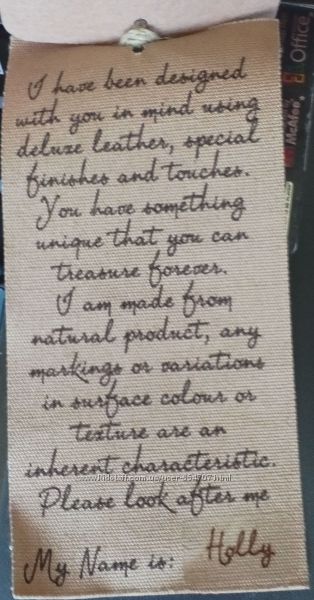 I have been designed
with you in mind using
deluxe leather, special
finishes and touches.
You have something
unique that you can
treasure forever.
I am made from
natural product, any
markings or variations
in surface colour or
texture are an
inherent characteristic.
Please look after me
My Name is: Holly
Office
McAfee